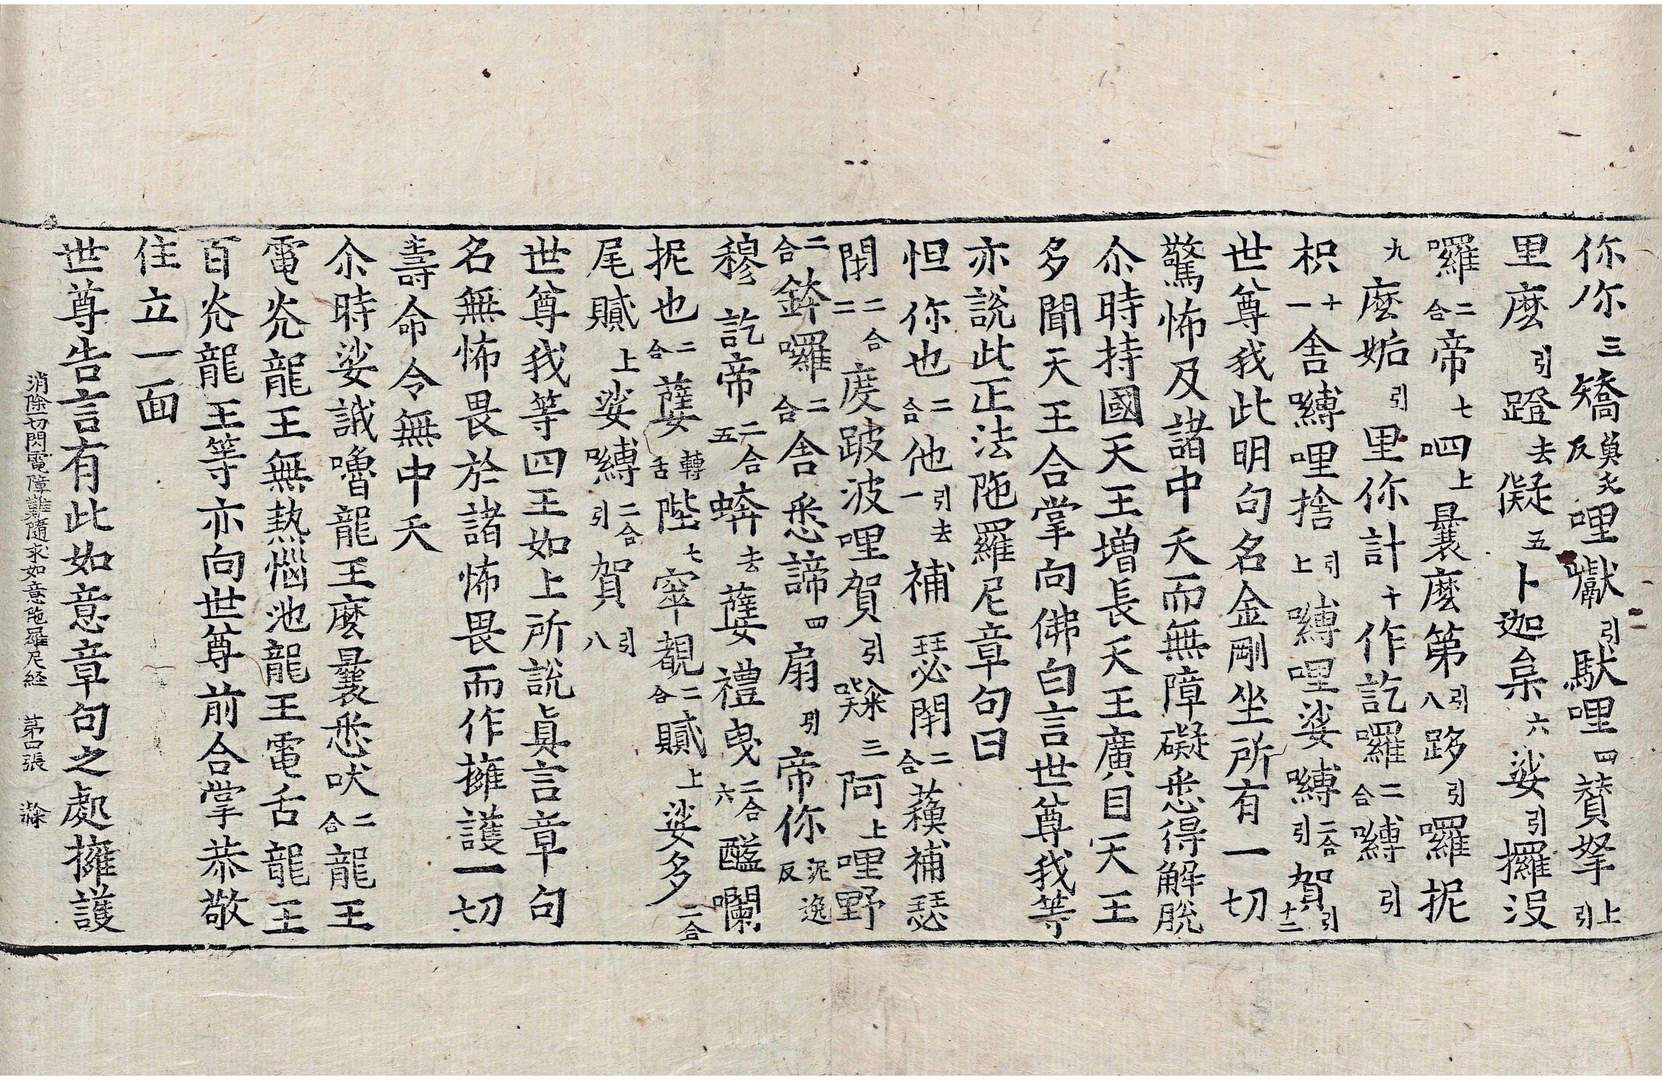 你尓三矯奠夭反哩獻引馱哩四贊拏上引
里麼引蹬去儗五卜迦枲六娑引攞沒
囉二合帝七呬上曩麼第引八跢引囉抳
九麼妬引里你計十作訖囉二合嚩引
枳十一舍嚩哩捨引上嚩哩娑嚩二合引賀引十二
世尊我此明句名金剛坐所有一切
驚怖及諸中夭而無障礙悉得解脫
尒時持國天王增長天王廣目天王
多聞天王合掌向佛白言世尊我等
亦說此正法陁羅尼章句曰
怛你也二合他引去一補瑟閇二合蘱補瑟
閇二合二度跛波哩賀引㘑三阿上哩野
二合鉢囉二合舍悉諦四扇引帝你泥逸反
穆訖帝二合五蟒去蘖禮曳二合六醯囒
抳也二合蘖轉舌陛七窣覩二合贓上娑多二合
尾贓上娑嚩二合引賀引八
世尊我等四王如上所說眞言章句
名無怖畏於諸怖畏而作擁護一切
壽命令無中夭
尒時娑誐嚕龍王麼曩悉吠二合龍王
電光龍王無熱惱池龍王電舌龍王
百光龍王等亦向世尊前合掌恭敬
住立一面
世尊告言有此如意章句之處擁護
消除一切閃電障難隨求如意陁羅尼経 第四張 滌